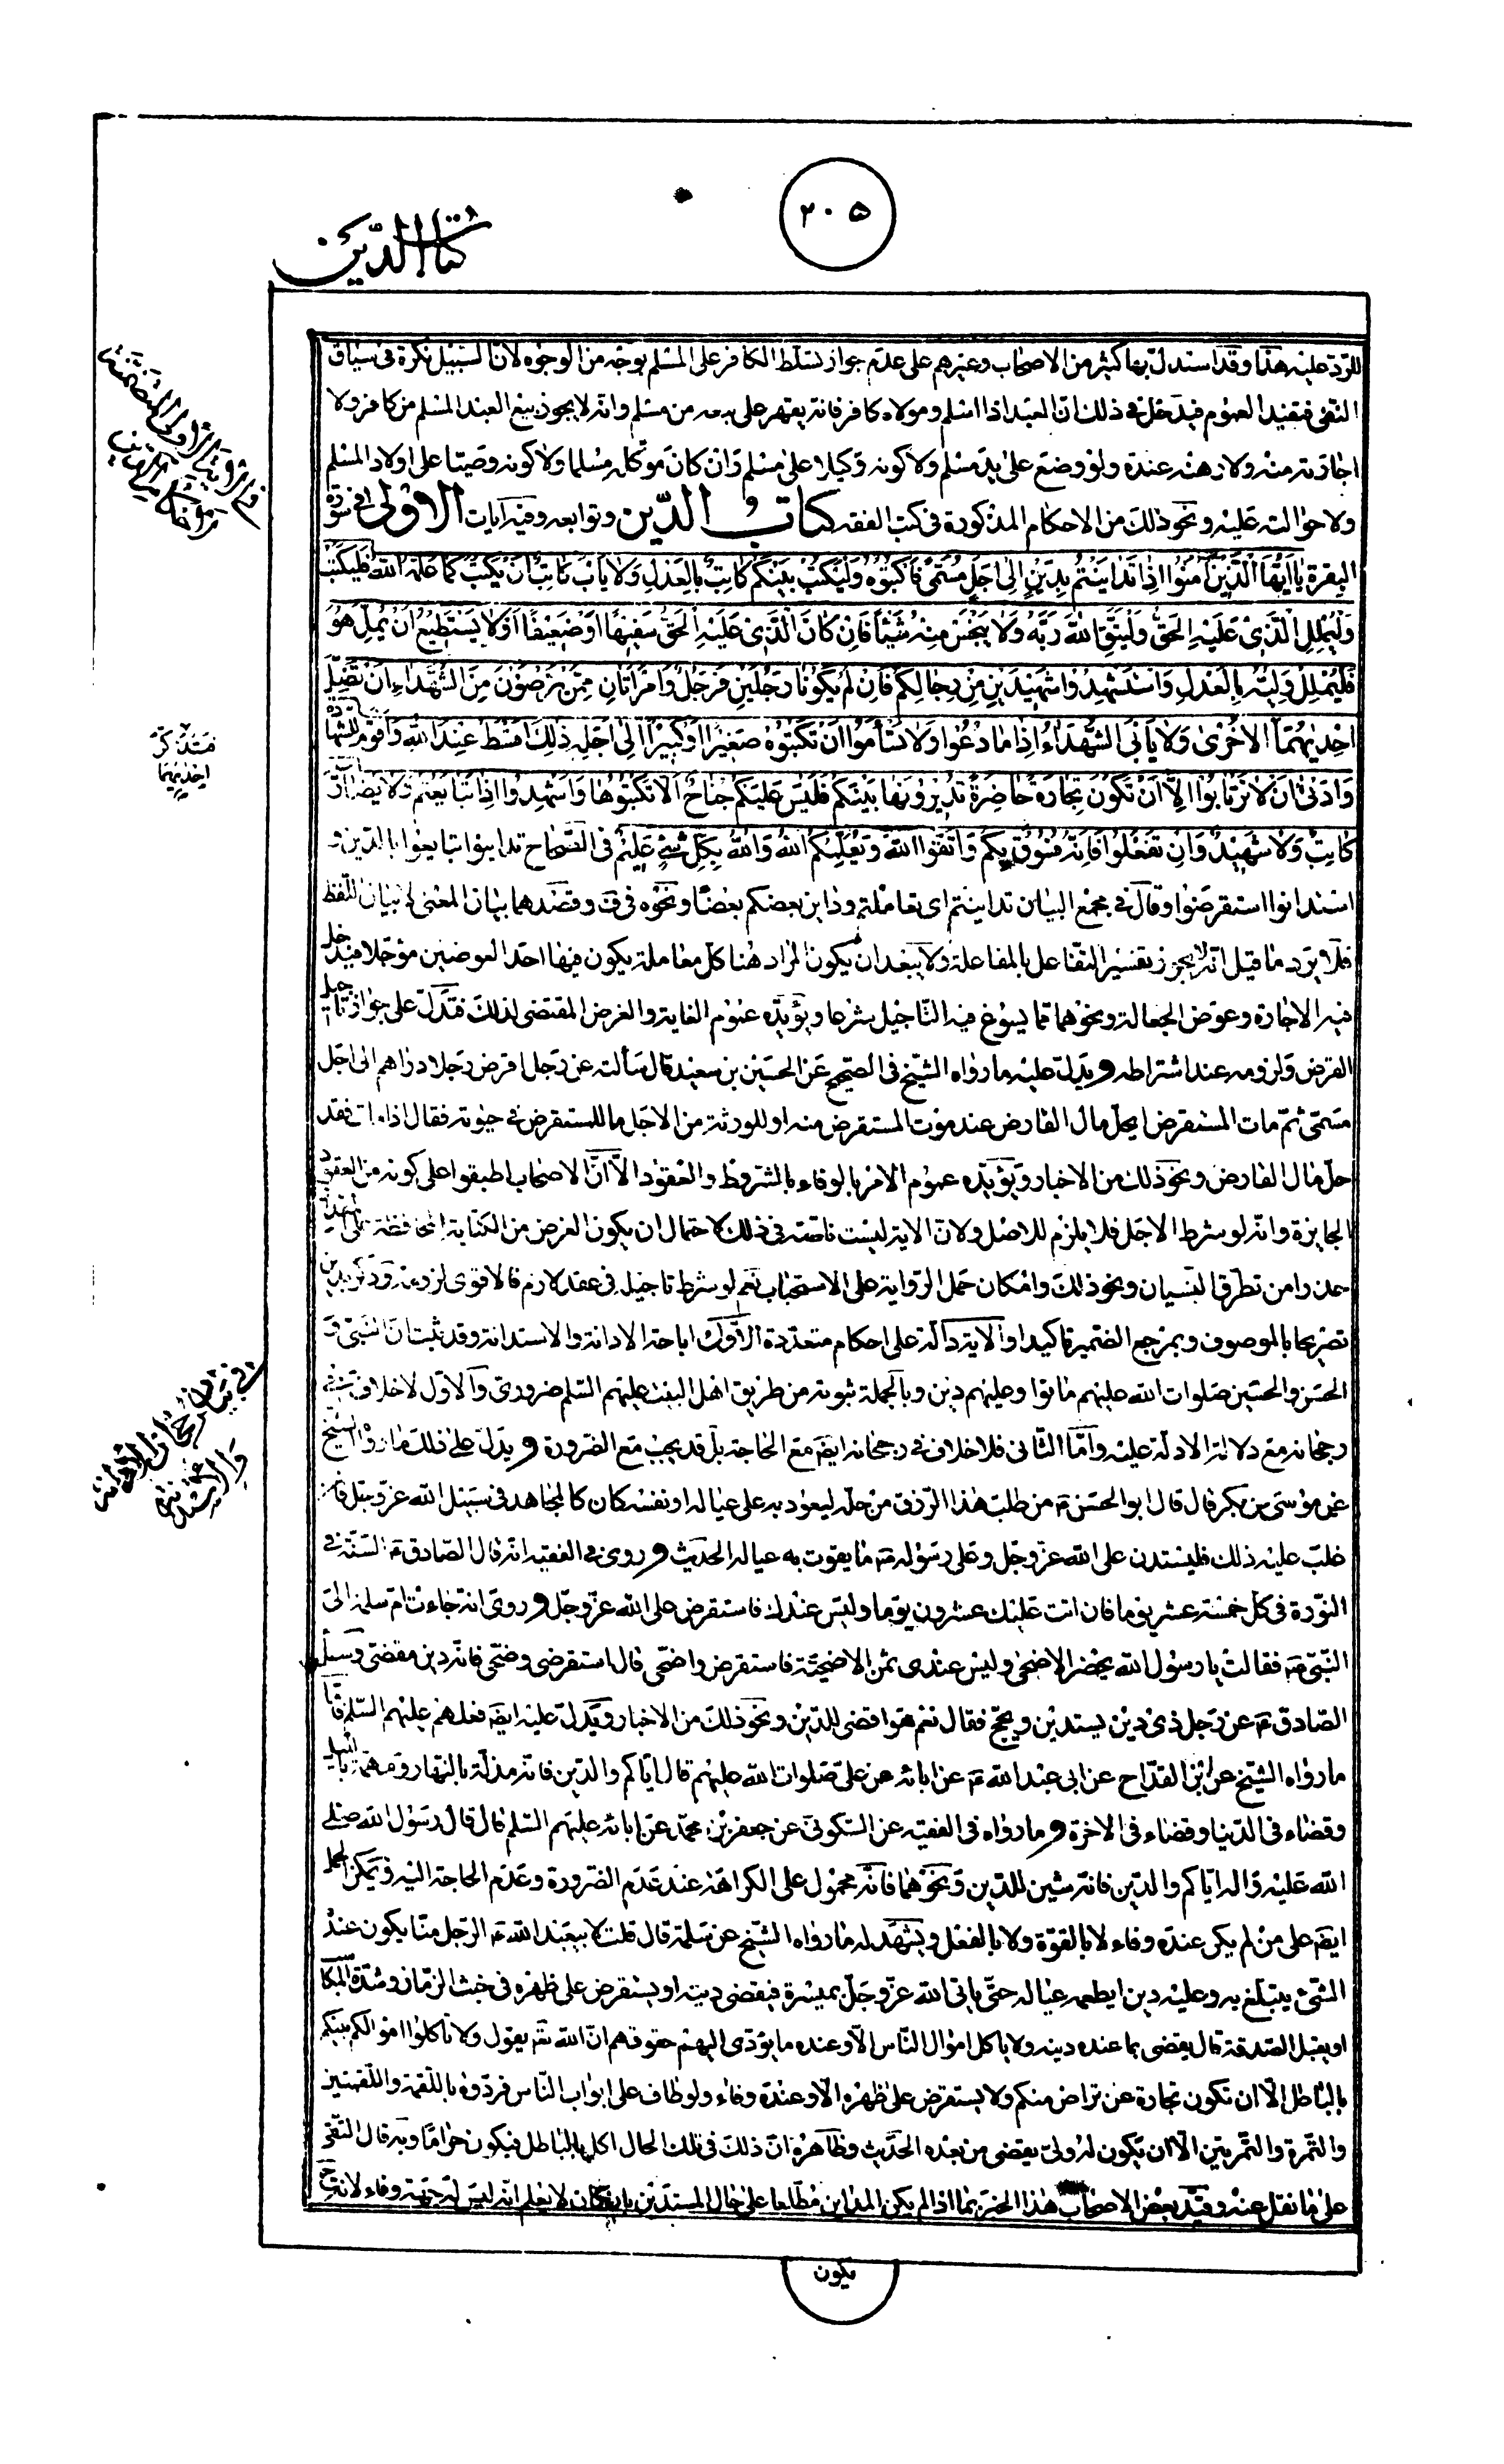 ۲۰۵
كتاب الدين
للرد عليه هذا وقد استدل بها كثير من الاصحاب وغيرهم على عدم جواز تسلط الكافر على المسلم بوجه من الوجوه لان السبيل نكرة في سياق
النفى فتفيد العموم فيدخل في ذلك ان العبد اذا اسلم ومولاه كافر فانه يقهر على بيعه من مسلم وانه لا يجوز بيع العبد المسلم من كافر ولا
اجارته منه ولا رهنه عنده ولو وضع على يد مسلم ولا كونه وكيلا على مسلم وان كان موكله مسلما ولا كونه وصيّا على اولاد المسلم
ولا حوالته عليه ونحو ذلك من الاحكام المذكورة في كتب الفقه كتاب الدّين وتوابعه وفيه آيات الاولى في سورة
البقرة يا ايّها الّذين آمنوا اذا تداينتم بدين الى اجل مسمّى فاكتبوه وليكتب بينكم كاتب بالعدل ولا ياب كاتب ان يكتب كما علّمه الله فليكتب
وليملل الّذى عليه الحقّ وليتّق الله ربّه ولا يبخس منه شيئا فان كان الّذى عليه الحقّ سفيها او ضعيفا او لا يستطيع ان يملّ هو
فليملل وليّه بالعدل واستشهدوا شهيدين من رجالكم فان لم يكونا رجلين فرجل وامراتان ممّن ترضون من الشّهداء ان تضلّ
احديهما الاخرى ولا يأبى الشّهداء اذا ما دعوا ولا تسأموا ان تكتبوه صغيرا او كبيرا الى اجله ذلك اقسط عند الله واقوم للشّهادة
وادنى ان لا ترتابوا الّا ان تكون تجارة حاضرة تديرونها بينكم فليس عليكم جناح الّا تكتبوها واشهدوا اذا تبايعتم ولا يضارّ
كاتب ولا شهيد وان تفعلوا فانّه فسوق بكم واتّقوا الله ويعلّمكم الله والله بكلّ شئ عليم في الصّحاح تداينوا تبايعوا بالدّين و
استدانوا استقرضوا وقال في مجمع البيان تداينتم اى تعاملتم وداين بعضكم بعضا ونحوه في ق وقصدهما بيان المعنى لا بيان اللّفظ
فلا يرد ما قيل انّه لا يجوز تفسير التفاعل بالمفاعلة ولا يبعد ان يكون المراد هنا كلّ معاملة يكون فيها احد العوضين مؤجّلا فيدخل
فيه الاجارة وعوض الجعالة ونحوهما ممّا يسوغ فيه التأجيل شرعا ويؤيّده عموم الغاية والغرض المقتضى لذلك فتدلّ على جواز تأجيل
القرض ولزومه عند اشتراطه ويدلّ عليه ما رواه الشّيخ في الصّحيح عن الحسين بن سعيد قال سألته عن رجل اقرض رجلا دراهم الى اجل
مسمّى ثمّ مات المستقرض ايحلّ مال القارض عند موت المستقرض منه او للورثة من الاجل ما للمستقرض في حيوته فقال اذا مات فقد
حلّ مال القارض ونحو ذلك من الاخبار ويؤيّده عموم الامر بالوفاء بالشّروط والعقود الّا انّ الاصحاب اطبقوا على كونه من العقود
الجايزة وانّه لو شرط الاجل فلا يلزم للاصل ولانّ الاية ليست ناصّة في ذلك لاحتمال ان يكون الغرض من الكتابة المحافظة على
وامن تطرّق النّسيان ونحو ذلك وامكان حمل الرّواية على الاستحباب نعم لو شرط تاجيله في عقد لازم فالاقوى لزومه وذكر بدين
تصريحا بالموصوف وبمرجع الضّمير تاكيدا والآية دالّة على احكام متعدّدة الاوّل اباحة الادانة والاستدانة وقد ثبت انّ النّبىّ ص و
الحسن والحسين صلوات الله عليهم ماتوا وعليهم دين وبالجملة ثبوته من طريق اهل البيت عليهم السّلم ضرورىّ والاوّل لا خلاف في
رجحانه مع دلالة الادلّة عليه وامّا الثّانى فلا خلاف في رجحانه ايضا مع الحاجة بل قد يجب مع الضّرورة ويدلّ على ذلك ما رواه الشّيخ
عن موسى بن بكر قال قال ابو الحسن ع من طلب هذا الرّزق من حلّه ليعود به على عياله او نفسه كان كالمجاهد في سبيل الله عزّ وجل فان
غلب عليه ذلك فليستدن على الله عزّ وجل وعلى رسوله ص ما يقوت به عياله الحديث وروى في الفقيه انّه قال الصّادق ع السّنّة في
النّورة في كلّ خمسة عشر يوما فان اتت عليك عشرون يوما وليس عندك فاستقرض على الله عزّ وجلّ وروى انّه جاءت امّ سلمة الى
النّبىّ ص فقالت يا رسول الله يحضر الاضحى وليس عندى ثمن الاضحيّة فاستقرض واضحى قال استقرضى وضحّى فانّه دين مقضى وسئل
الصّادق ع عن رجل ذى دين يستدين ويحجّ فقال نعم هو اقضى للدّين ونحو ذلك من الاخبار ويدلّ عليه ايضا فعلهم عليهم السّلم فامّا
ما رواه الشّيخ عن ابن القدّاح عن ابى عبد الله ع عن ابائه عن علىّ صلوات الله عليهم قال ايّاكم والدّين فانّه مذلّة بالنّهار ومهمّة باللّيل
وقضاء في الدّنيا وقضاء في الاخرة وما رواه في الفقيه عن السّكونىّ عن جعفر بن محمّد عن ابائه عليهم السّلم قال قال رسول الله صلّى
الله عليه واله ايّاكم والدّين فانّه شين للدّين ونحوهما فانّه محمول على الكراهة عند عدم الضّرورة وعدم الحاجة اليه ويمكن الحمل
ايضا على من لم يكن عنده وفاء لا بالقوّة ولا بالفعل ويشهد له ما رواه الشّيخ عن سلمة قال قلت لابيعبد الله ع الرّجل منّا يكون عنده
الشّئ يتبلّغ به وعليه دين ايطعمه عياله حتّى ياتى الله عزّ وجلّ بميسرة فيقضى دينه او يستقرض على ظهره في خبث الزّمان وشدّة المكاسب
او يقبل الصّدقة قال يقضى بما عنده دينه ولا ياكل اموال النّاس الّا وعنده ما يؤدّى اليهم حقوقهم انّ الله تعه يقول ولا تأكلوا اموالكم بينكم
بالباطل الّا ان تكون تجارة عن تراض منكم ولا يستقرض على ظهره الّا وعنده وفاء ولو طاف على ابواب النّاس فردّوه باللّقمة واللّقمتين
والتّمرة والتّمرتين الّا ان يكون له ولىّ يقضى من بعده الحديث وظاهره انّ ذلك في تلك الحال اكل بالباطل فيكون حراما وبه قال التّقى
على ما نقل عنه وقيّد بعض الاصحاب هذا الخبر بما اذا لم يكن المداين مطّلعا على حال المستدين بان كان لا يعلم انّه ليس له جهة وفاء لانّه ح
يكون
فتذكر
احديهما
في بيان رجحان الادانة
والاستدانة